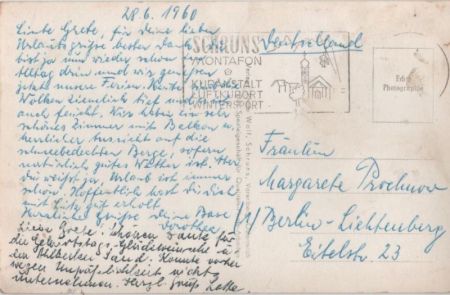 28.6.1960
Liebe Grete, für deine lieben
Urlaubsgrüße besten Dank. Du
bist ja nun wieder schon im
Alltag drin und wir genießen
jetzt unsere Ferien. Heute
Wolken ziemlich tief und
auch feucht. Wir haben ein sehr
schönes Zimmer mit Balkon u.
herrlicher Aussicht auf die
schneebedeckten Berge, sofern
natürlich gutes Wetter ist. Aber
du weißt ja, Urlaub ist immer
schön. Hoffentlich hast du dich
mit Lotte gut erholt.
Herzliche Grüße deine Base
Dorothea
Liebe Grete! Schönen Dank für
die Geburtstags-Glückwünsche u.
den Sand. Konnte vorher
wegen Unpäßlichkeit nichts
unternehmen. Herzl. Gruß
SCHRUNS
MONTAFON
KURANSTALT
LUFTKURORT
WINTERSPORT
Deutschland
Echte
Photographie
Fräulein
Margarete Prochnow
Berlin-Lichtenberg
Eitelstr. 23